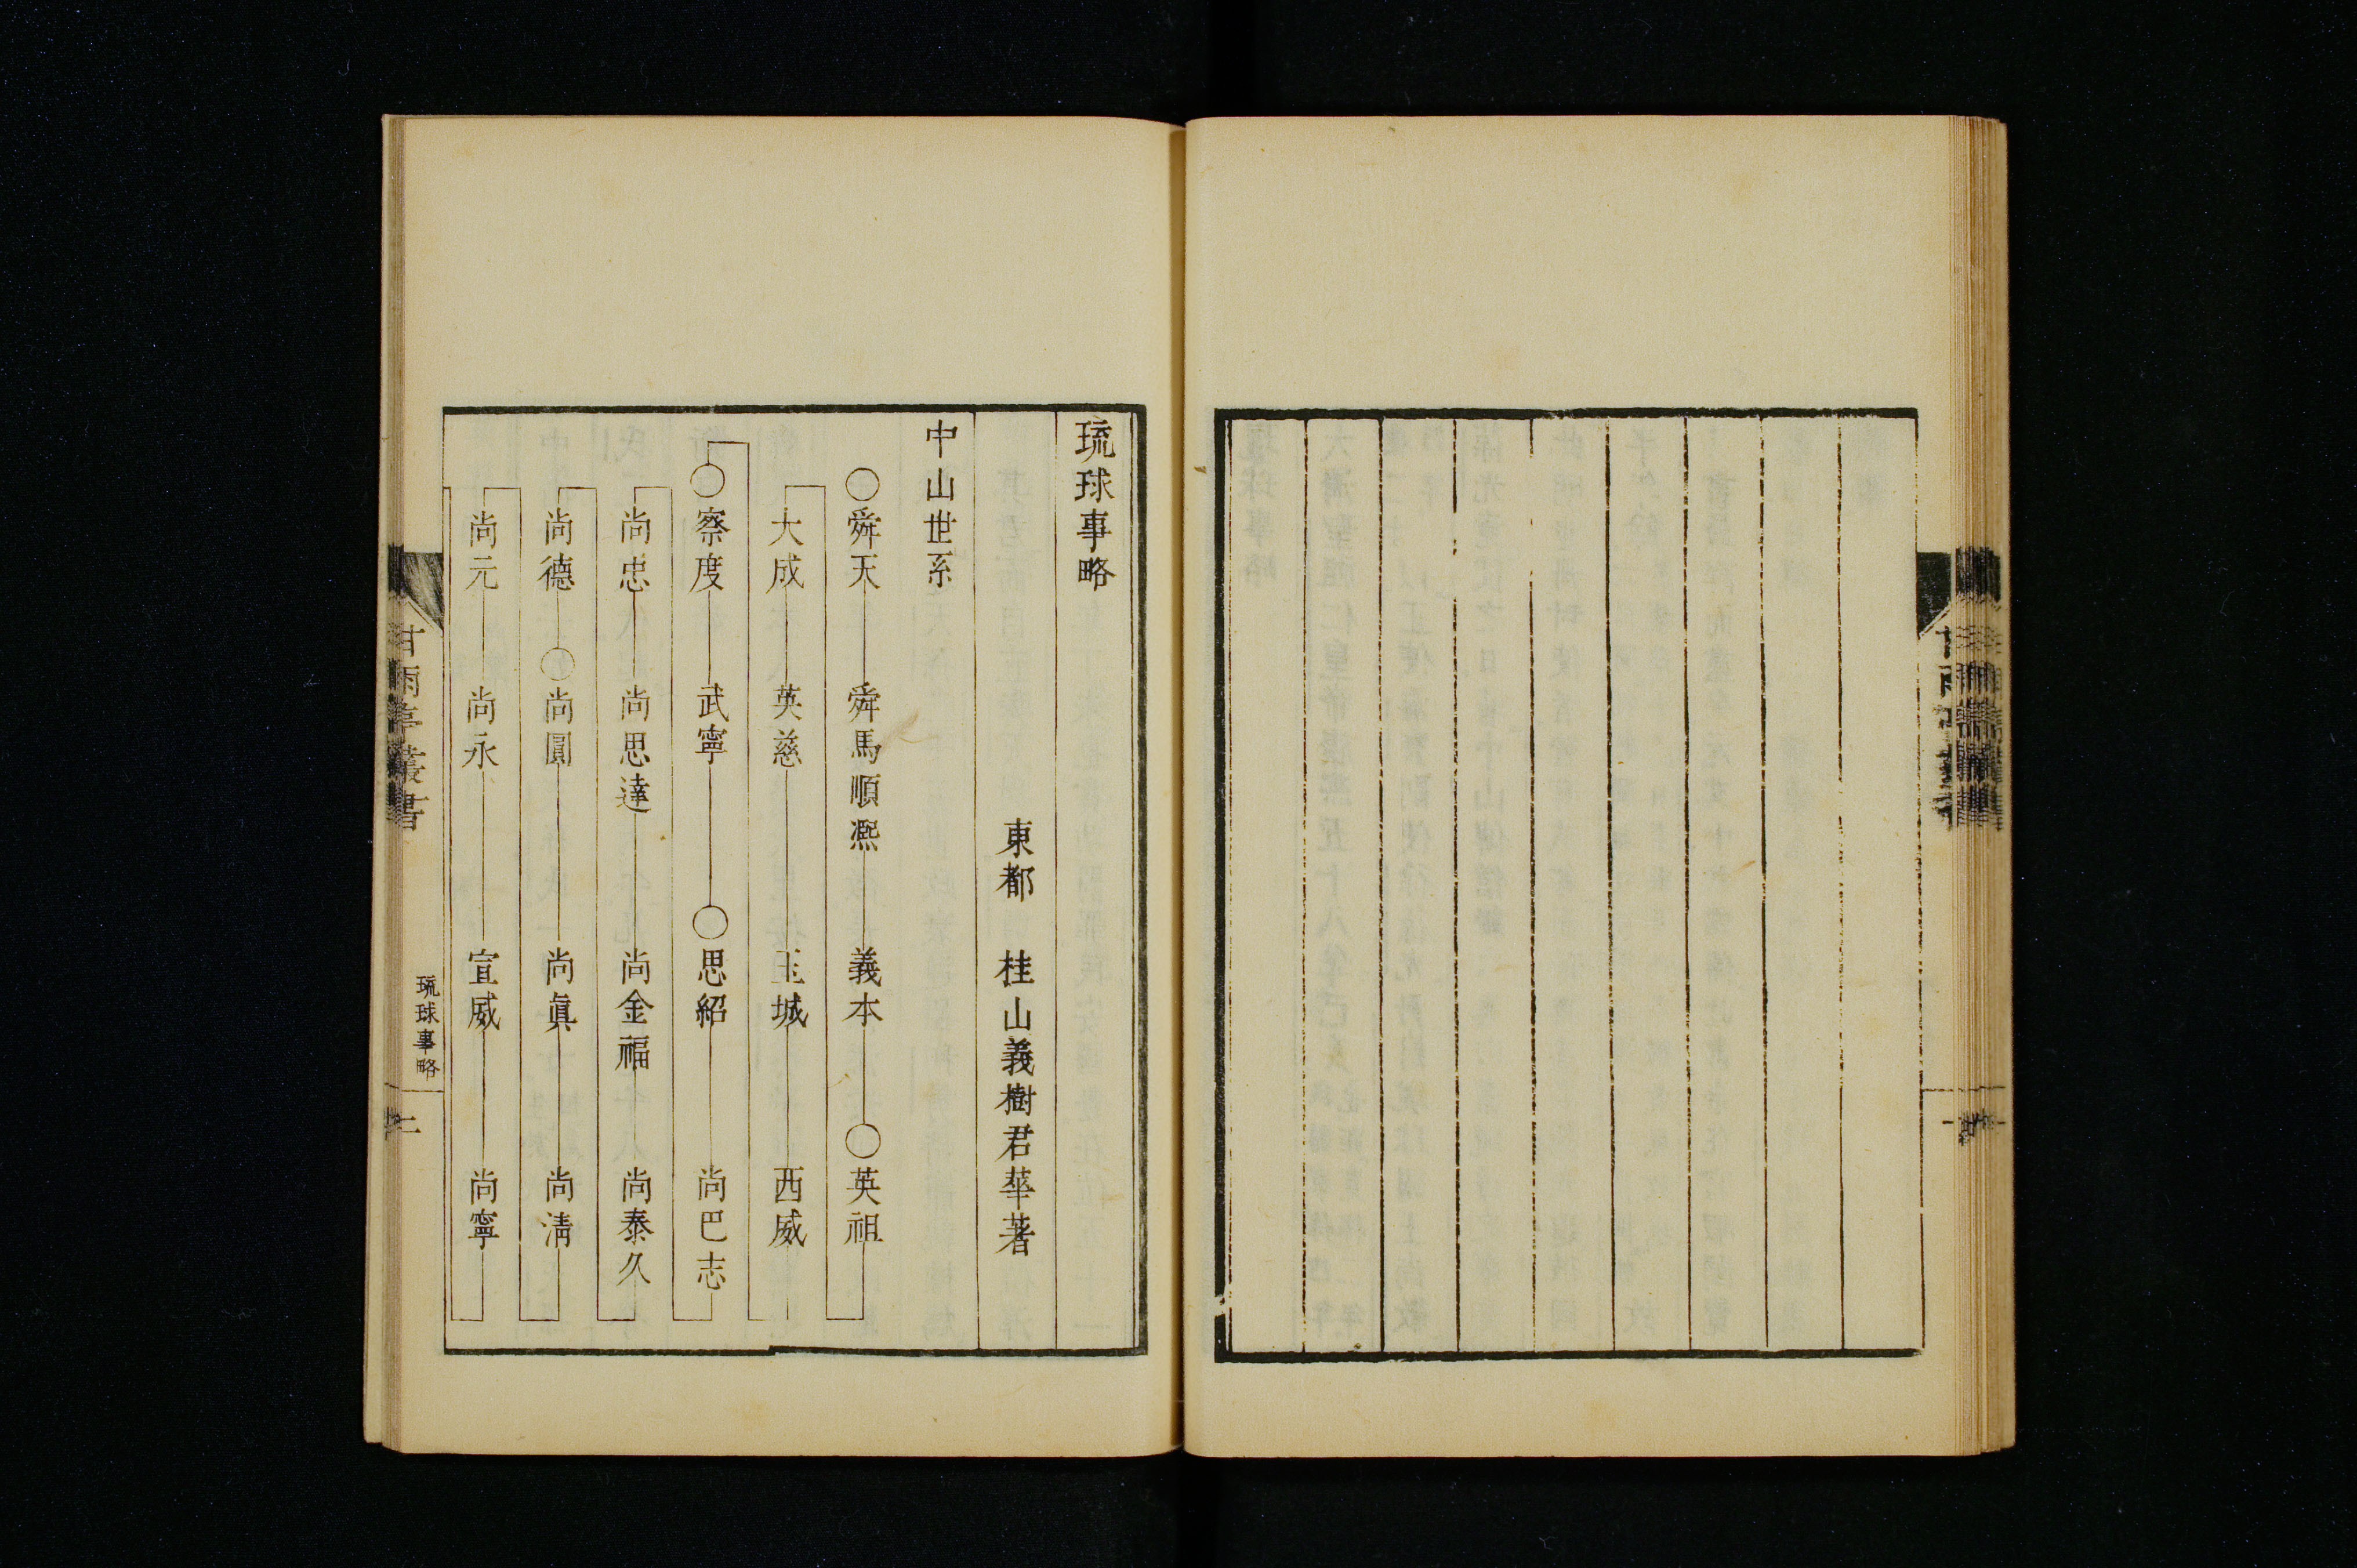 琉球事略
東都 桂山義樹君華著
中山世系
○舜天 舜馬順熈 義本 ○英祖
大成 英慈 玉城 西威
○察度 武寧 ○思紹 尚巴志
尚忠 尚思達 尚金福 尚泰久
尚德 ○尚圓 尚眞 尚淸
尚元 尚永 宣威 尚寧
甘雨亭叢書
琉球事略
一